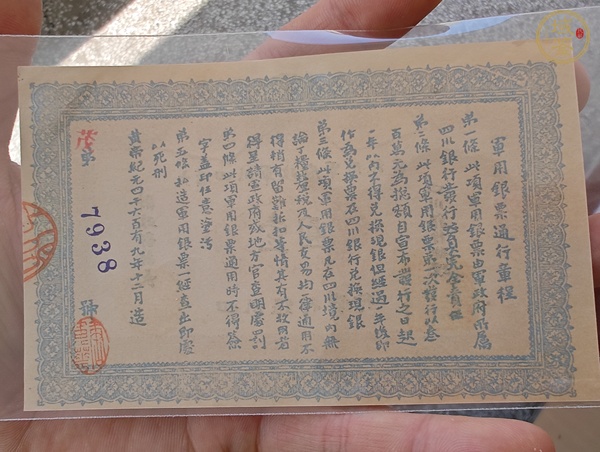 軍用銀票通行章程
第一條 此項軍用銀票由軍政府所屬
四川銀行發行
第二條 此項軍用銀票第一次發行以叁
百萬元為摠額自宣布發行之日起
一年以內不得兌換現銀但經過一年後即
作為兌換票在四川銀行兌換現銀
第三條 此項軍用銀票凡在四川境內無
論丁糧釐稅及人民交易均應通用不
得稍有留難折扣等情其有不收用者
得呈請軍政府或地方官查明處罰
第四條 此項軍用銀票通用時不得添
字蓋印任意塗污
第五條 私造軍用銀票一經查出即處
以死刑
黃帝紀元四千六百有九年十二月造
茂第 7938 號